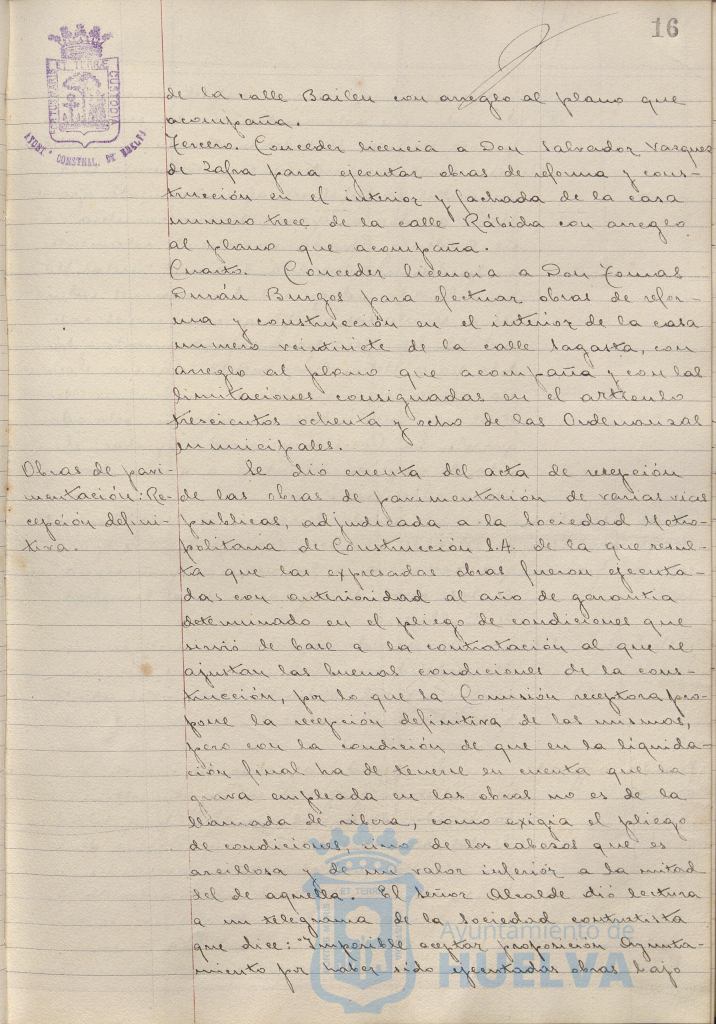 16
PORTUS MARIS ET TERRÆ CUSTODIA
AYUNT. CONSTNAL. DE HUELVA
de la calle Bailen con arreglo al plano que
acompaña.
Tercero. Conceder licencia a Don Salvador Vazquez
de Zafra para ejecutar obras de reforma y cons-
trucción en el interior y fachada de la casa
numero trece de la calle Rábida con arreglo
al plano que acompaña.
Cuarto. Conceder licencia a Don Tomas
Durán Burgos para efectuar obras de refor-
ma y construcción en el interior de la casa
numero veintisiete de la calle Sagasta, con
arreglo al plano que acompaña y con las
limitaciones consignadas en el articulo
trescientos ochenta y ocho de las Ordenanzas
municipales.
Obras de pavi-
mentación: Re-
cepción defini-
tiva.
Se dió cuenta del acta de recepción
de las obras de pavimentación de varias vias
publicas, adjudicada a la Sociedad Metro-
politana de Construcción S.A. de la que resul-
ta que las expresadas obras fueron ejecuta-
das con anterioridad al año de garantia
determinado en el pliego de condiciones que
sirvió de base a la contratación al que se
ajustan las buenas condiciones de la cons-
trucción, por lo que la Comisión receptora pro-
pone la recepción definitiva de las mismas,
pero con la condición de que en la liquida-
ción final ha de tenerse en cuenta que la
grava empleada en las obras no es de la
llamada de ribera, como exigia el pliego
de condiciones, sino de los cabezos que es
arcillosa y de un valor inferior a la mitad
del de aquella. El señor Alcalde dió lectura
a un telegrama de la Sociedad contratista
que dice: Imposible aceptar proposición Ayunta-
miento por haber sido ejecutadas obras bajo
Ayuntamiento de
HUELVA